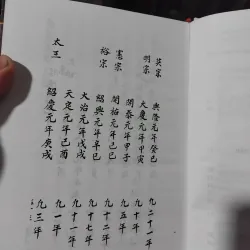 英宗 興隆元年癸巳 九二十一年
明宗 大慶元年甲寅 九十年
開泰元年甲子 九五年
憲宗 開祐元年己巳 九十二年
裕宗 元年辛巳 九十七年
大治元年戊戌 九十一年
天定元年己酉 九一年
太王 紹慶元年庚戌 九三年